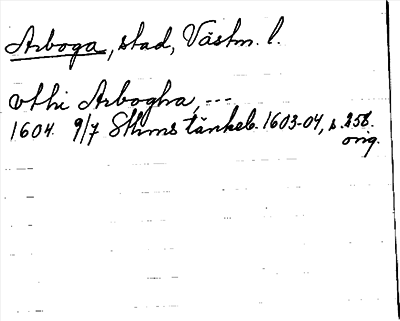 Arboga, stad, Västm. l.
vthi Arbogha, ---
1604. 9/7 Sthms tänkeb. 1603-04, s. 256.
orig.